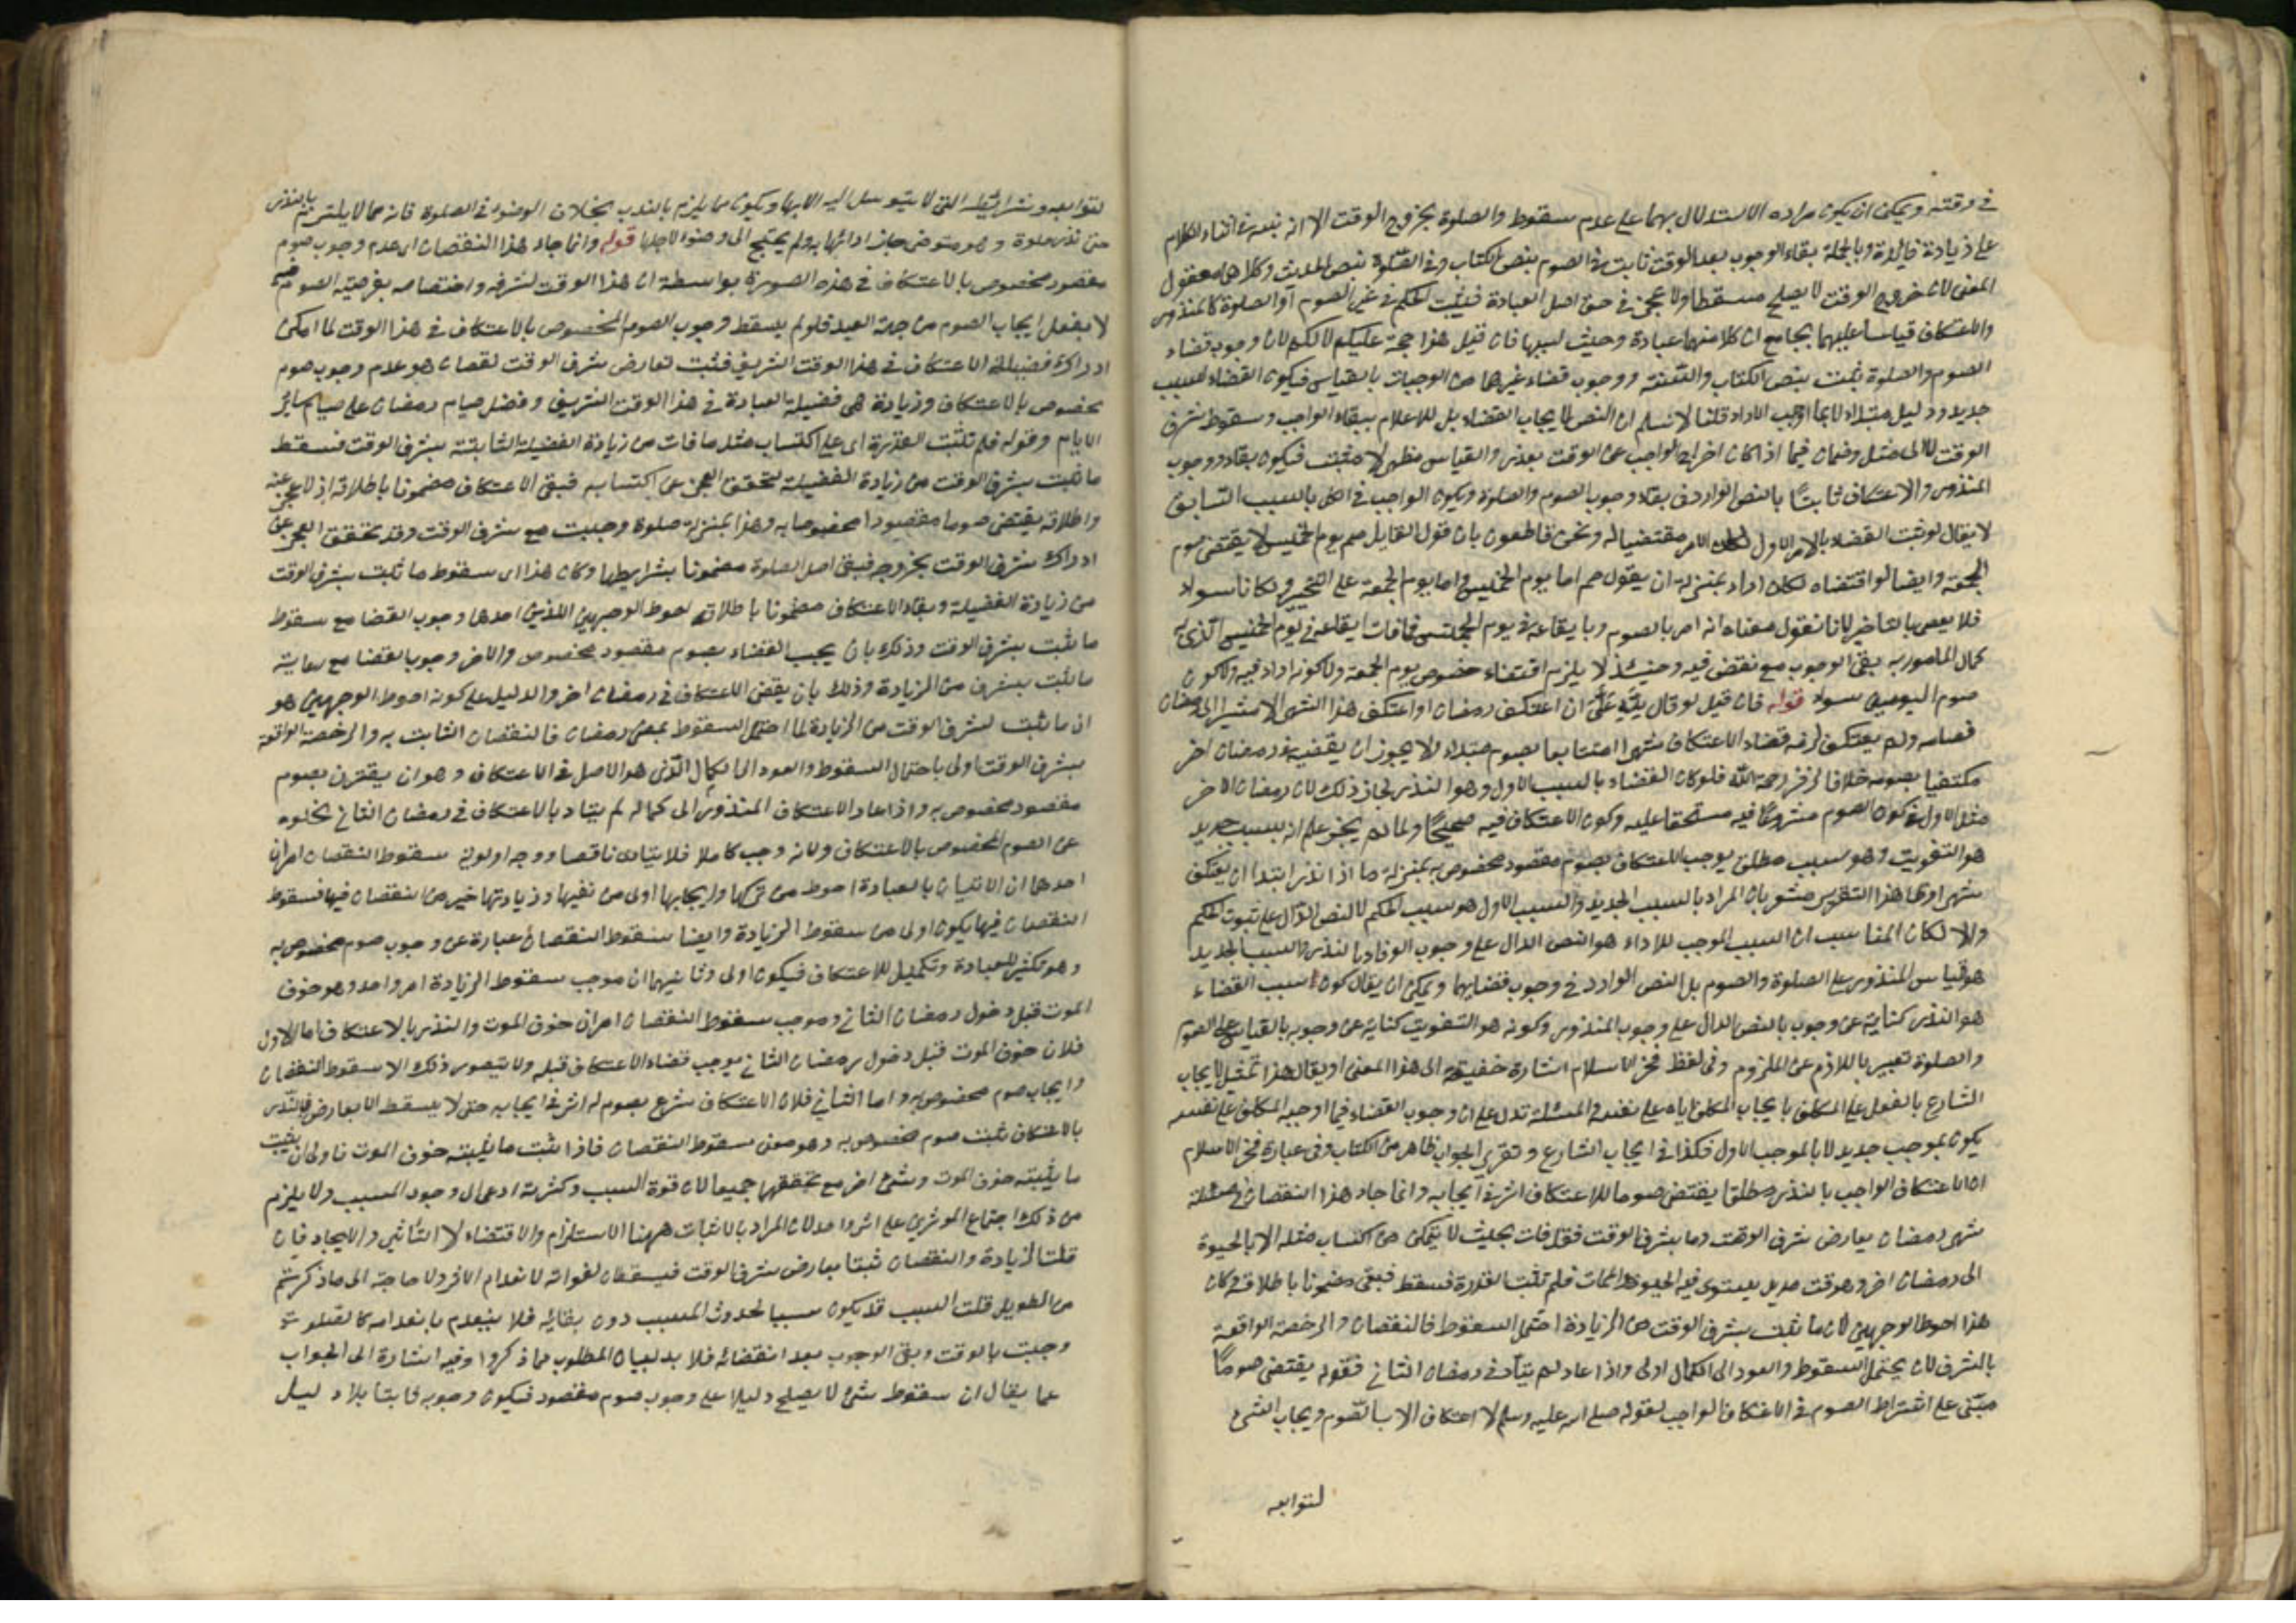 في وقته ويمكن ان يكون مراده الاستدلال بهما على عدم سقوط والصلوة بخروج الوقت الا انه نبه في اثناء الكلام
على زيادة فائدة وبالجملة بقاء الوجوب بعد الوقت ثابت في الصوم بنص الكتاب وفي الصلوة بنص الحديث وكلاهما معقول
المعنى لان خروج الوقت لا يصلح مسقطا ولا عجز في حق اصل العبادة فيثبت الحكم في غير الصوم والصلوة كالمنذور
والاعتكاف قياسا عليهما بجامع ان كلا منهما عبادة وجبت لسببها فان قيل هذا حجة عليكم لا لكم لان وجوب قضاء
الصوم والصلوة يثبت بنص الكتاب والسنة ووجوب قضاء غيرهما من الواجبات بالقياس فيكون القضاء بسبب
جديد ودليل مبتداء لا بما اوجب الاداء قلنا لا نسلم ان النص لايجاب القضاء بل للاعلام ببقاء الواجب وسقوط شرف
الوقت لا الى مثل وضمان فيما اذا كان اخراج الواجب عن الوقت بعذر والقياس مظهر لا مثبت فيكون بقاء ووجوب
المنذور والاعتكاف ثابتا بالنص الوارد في بقاء وجوب الصوم والصلوة ويكون الواجب في الكل بالسبب السابق
لا يقال لو ثبت القضاء بالامر الاول لكان الامر مقتضيا له ونحن قاطعون بان قول القايل صم يوم الخميس لا يقتضي صوم
الجمعة وايضا لو اقتضاه لكان اداء بمنزلة ان يقول صم اما يوم الخميس واما يوم الجمعة على التخيير ولكانا سواء
فلا يعصي بالتاخير لانا نقول معناه انه امر بالصوم وبايقاعه في يوم الخميس فلما فات ايقاعه في يوم الخميس الذي به
كمال المامور به بقي الوجوب مع نقص فيه وحينئذ لا يلزم اقتضاء خصوص يوم الجمعة ولا كونه اداء فيه ولا كون
صوم اليومين سواء قوله فان قيل لو قال لله علي ان اعتكف رمضان او اعتكف هذا الشهر مشيرا الى رمضان
فصامه ولم يعتكف لزمه قضاء الاعتكاف شهرا متتابعا بصوم مبتداء ولا يجوز ان يقضيه في رمضان اخر
مكتفيا بصومه خلافا لزفر رحمه الله فلو كان القضاء بالسبب الاول وهو النذر لجاز ذلك لان رمضان الاخر
مثل الاول في كون الصوم مشروعا فيه مستحقا عليه وكون الاعتكاف فيه صحيحا ولما لم يجز علم انه بسبب جديد
هو التفويت وهو سبب مطلق يوجب الاعتكاف بصوم مقصود مخصوص به بمنزلة ما اذا نذر ابتداء ان يعتكف
شهرا وهذا التقرير مشعر بان المراد بالسبب الجديد والسبب الاول هو سبب الحكم لا النص الدال على ثبوت الحكم
والا لكان المناسب ان السبب الموجب للاداء هو النص الدال على وجوب الوفاء بالنذر والسبب الجديد
هو قياس المنذور على الصلوة والصوم بل النص الوارد في وجوب قضايهما ويمكن ان يقال كون سبب القضاء
هو النذر كناية عن وجوب بالنص الدال على وجوب المنذور وكونه هو التفويت كناية عن وجوبه بالقياس على الصوم
والصلوة تعبير باللازم عن الملزوم وفي لفظ فخر الاسلام اشارة خفيفة الى هذا المعنى او يقال هذا تمثيل لايجاب
الشارع بالفعل على المكلف بايجاب المكلف اياه على نفسه والمسئلة تدل على ان وجوب القضاء فيما اوجبه المكلف على نفسه
يكون بموجب جديد لا بالموجب الاول فكذا في ايجاب الشارع وتقرير الجواب ظاهر من الكتاب وفي عبارة فخر الاسلام
ان الاعتكاف الواجب بالنذر مطلقا يقتضي صوما للاعتكاف اثر في ايجابه وانما جاء هذا النقصان في مسئلة
شهر رمضان بعارض شرف الوقت وما بشرف الوقت فقد فات بحيث لا يتمكن من اكتساب مثله الا بالحيوة
الى رمضان اخر وهو وقت مديد يستوي فيه الحيوة والممات فلم تثبت القدرة فسقط فبقي مضمونا باطلاقه وكان
هذا احوط الوجهين لان ما يثبت بشرف الوقت من الزيادة احتمل السقوط فالنقصان والرخصة الواقعة
بالشرف لان يحتمل السقوط والعود الى الكمال اولى واذا عاد لم يتأد في رمضان الثاني فقوله يقتضي صوما
مبني على اشتراط الصوم في الاعتكاف الواجب لقوله صلى الله عليه وسلم لا اعتكاف الا بالصوم وايجاب الشيء
لتوابعه
لتوابعه وشرائطه التي لا يتوسل اليه الا بها ويكون مما يلزم بالنذر بخلاف الوضوء في الصلوة فانه مما لا يلتزم بالنذر
حتى نذر صلوة وهو متوضئ جاز ادائها به ولم يحتج الى وضوء لاجلها قوله وانما جاء هذا النقصان اي عدم وجوب صوم
مقصود مخصوص بالاعتكاف في هذه الصورة بواسطة ان هذا الوقت لشرفه واختصاصه بفرضية الصوم
لا يقبل ايجاب الصوم من جهة العبد فلو لم يسقط وجوب الصوم المخصوص بالاعتكاف في هذا الوقت لما امكن
ادراك فضيلة الاعتكاف في هذا الوقت الشريف فثبت لعارض شرف الوقت نقصان هو عدم وجوب صوم
مخصوص بالاعتكاف وزيادة هي فضيلة العبادة في هذا الوقت الشريف وفضل صيام رمضان على صيام سائر
الايام وقوله فلم تثبت القدرة اي على اكتساب مثل ما فات من زيادة الفضيلة الثابتة بشرف الوقت فسقط
ما ثبت بشرف الوقت من زيادة الفضيلة لتحقق العجز عن اكتسابه فبقي الاعتكاف مضمونا باطلاقه اذ لا عجز عنه
واطلاقه يقتضي صوما مقصودا مخصوصا به وهذا بمنزلة صلوة وجبت مع شرف الوقت وقد تحقق العجز عن
ادراك شرف الوقت بخروجه فبقي اصل الصلوة مضمونا بشرايطها وكان هذا اي سقوط ما ثبت بشرف الوقت
من زيادة الفضيلة وبقاء الاعتكاف مضمونا باطلاقه احوط الوجهين اللذين احدهما وجوب القضا مع سقوط
ما ثبت بشرف الوقت وذلك بان يجب القضاء بصوم مقصود مخصوص والاخر وجوب القضا مع رعاية
ما ثبت بشرف من الزيادة وذلك بان يقضي الاعتكاف في رمضان اخر والدليل على كونه احوط الوجهين هو
ان ما ثبت لشرف الوقت من الزيادة لما احتمل السقوط بمضي رمضان فالنقصان الثابت به والرخصة الواقعة
بشرف الوقت اولى باحتمال السقوط والعود الى الكمال الذي هو الاصل في الاعتكاف وهو ان يقترن بصوم
مقصود مخصوص به واذا عاد الاعتكاف المنذور الى كماله لم يتاد بالاعتكاف في رمضان الثاني لخلوه
عن الصوم المخصوص بالاعتكاف ولانه وجب كاملا فلا يتادى ناقصا ووجه اولوية سقوط النقصان امران
احدهما ان الاتيان بالعبادة احوط من تركها وايجابها اولى من نفيها وزيادتها خير من نقصان فيها فسقوط
النقصان فيها يكون اولى من سقوط الزيادة وايضا سقوط النقصان عبارة عن وجوب صوم مخصوص به
وهو تكثير للعبادة وتكميل للاعتكاف فيكون اولى وثانيهما ان موجب سقوط الزيادة امر واحد وهو خوف
الموت قبل دخول رمضان الثاني وموجب سقوط النقصان امران خوف الموت والنذر بالاعتكاف اما الاول
فلان خوف الموت قبل دخول رمضان الثاني يوجب قضاء الاعتكاف قبله ولا يتصور ذلك الا بسقوط النقصان
وايجاب صوم مخصوص به واما الثاني فلان الاعتكاف شرع بصوم له اثر في ايجابه حتى لا يسقط الا بعارض فالنذر
بالاعتكاف يثبت صوم مخصوص به وهو معنى سقوط النقصان فاذا ثبت ما يثبته خوف الموت فاولى ان يثبت
ما يثبته خوف الموت وشيء اخر مع تحققهما جميعا لان قوة السبب وكثرته ادعى الى وجود المسبب ولا يلزم
من ذلك اجتماع المؤثرين على اثر واحد لان المراد بالاثبات ههنا الاستلزام والاقتضاء لا التأثير والايجاد فان
قلت الزيادة والنقصان ثبتا بعارض شرف الوقت فيسقطان لفواته لانعدام الاثر ولا حاجة الى ما ذكرتم
من التطويل قلت السبب قد يكون سببا لحدوث المسبب دون بقائه فلا ينعدم بانعدامه كالصلوة
وجبت بالوقت وبقي الوجوب بعد انقضائه فلا بد لبيان المطلوب مما ذكروا وفيه اشارة الى الجواب
عما يقال ان سقوط شيء لا يصلح دليلا على وجوب صوم مقصود فيكون وجوبه ثابتا بلا دليل